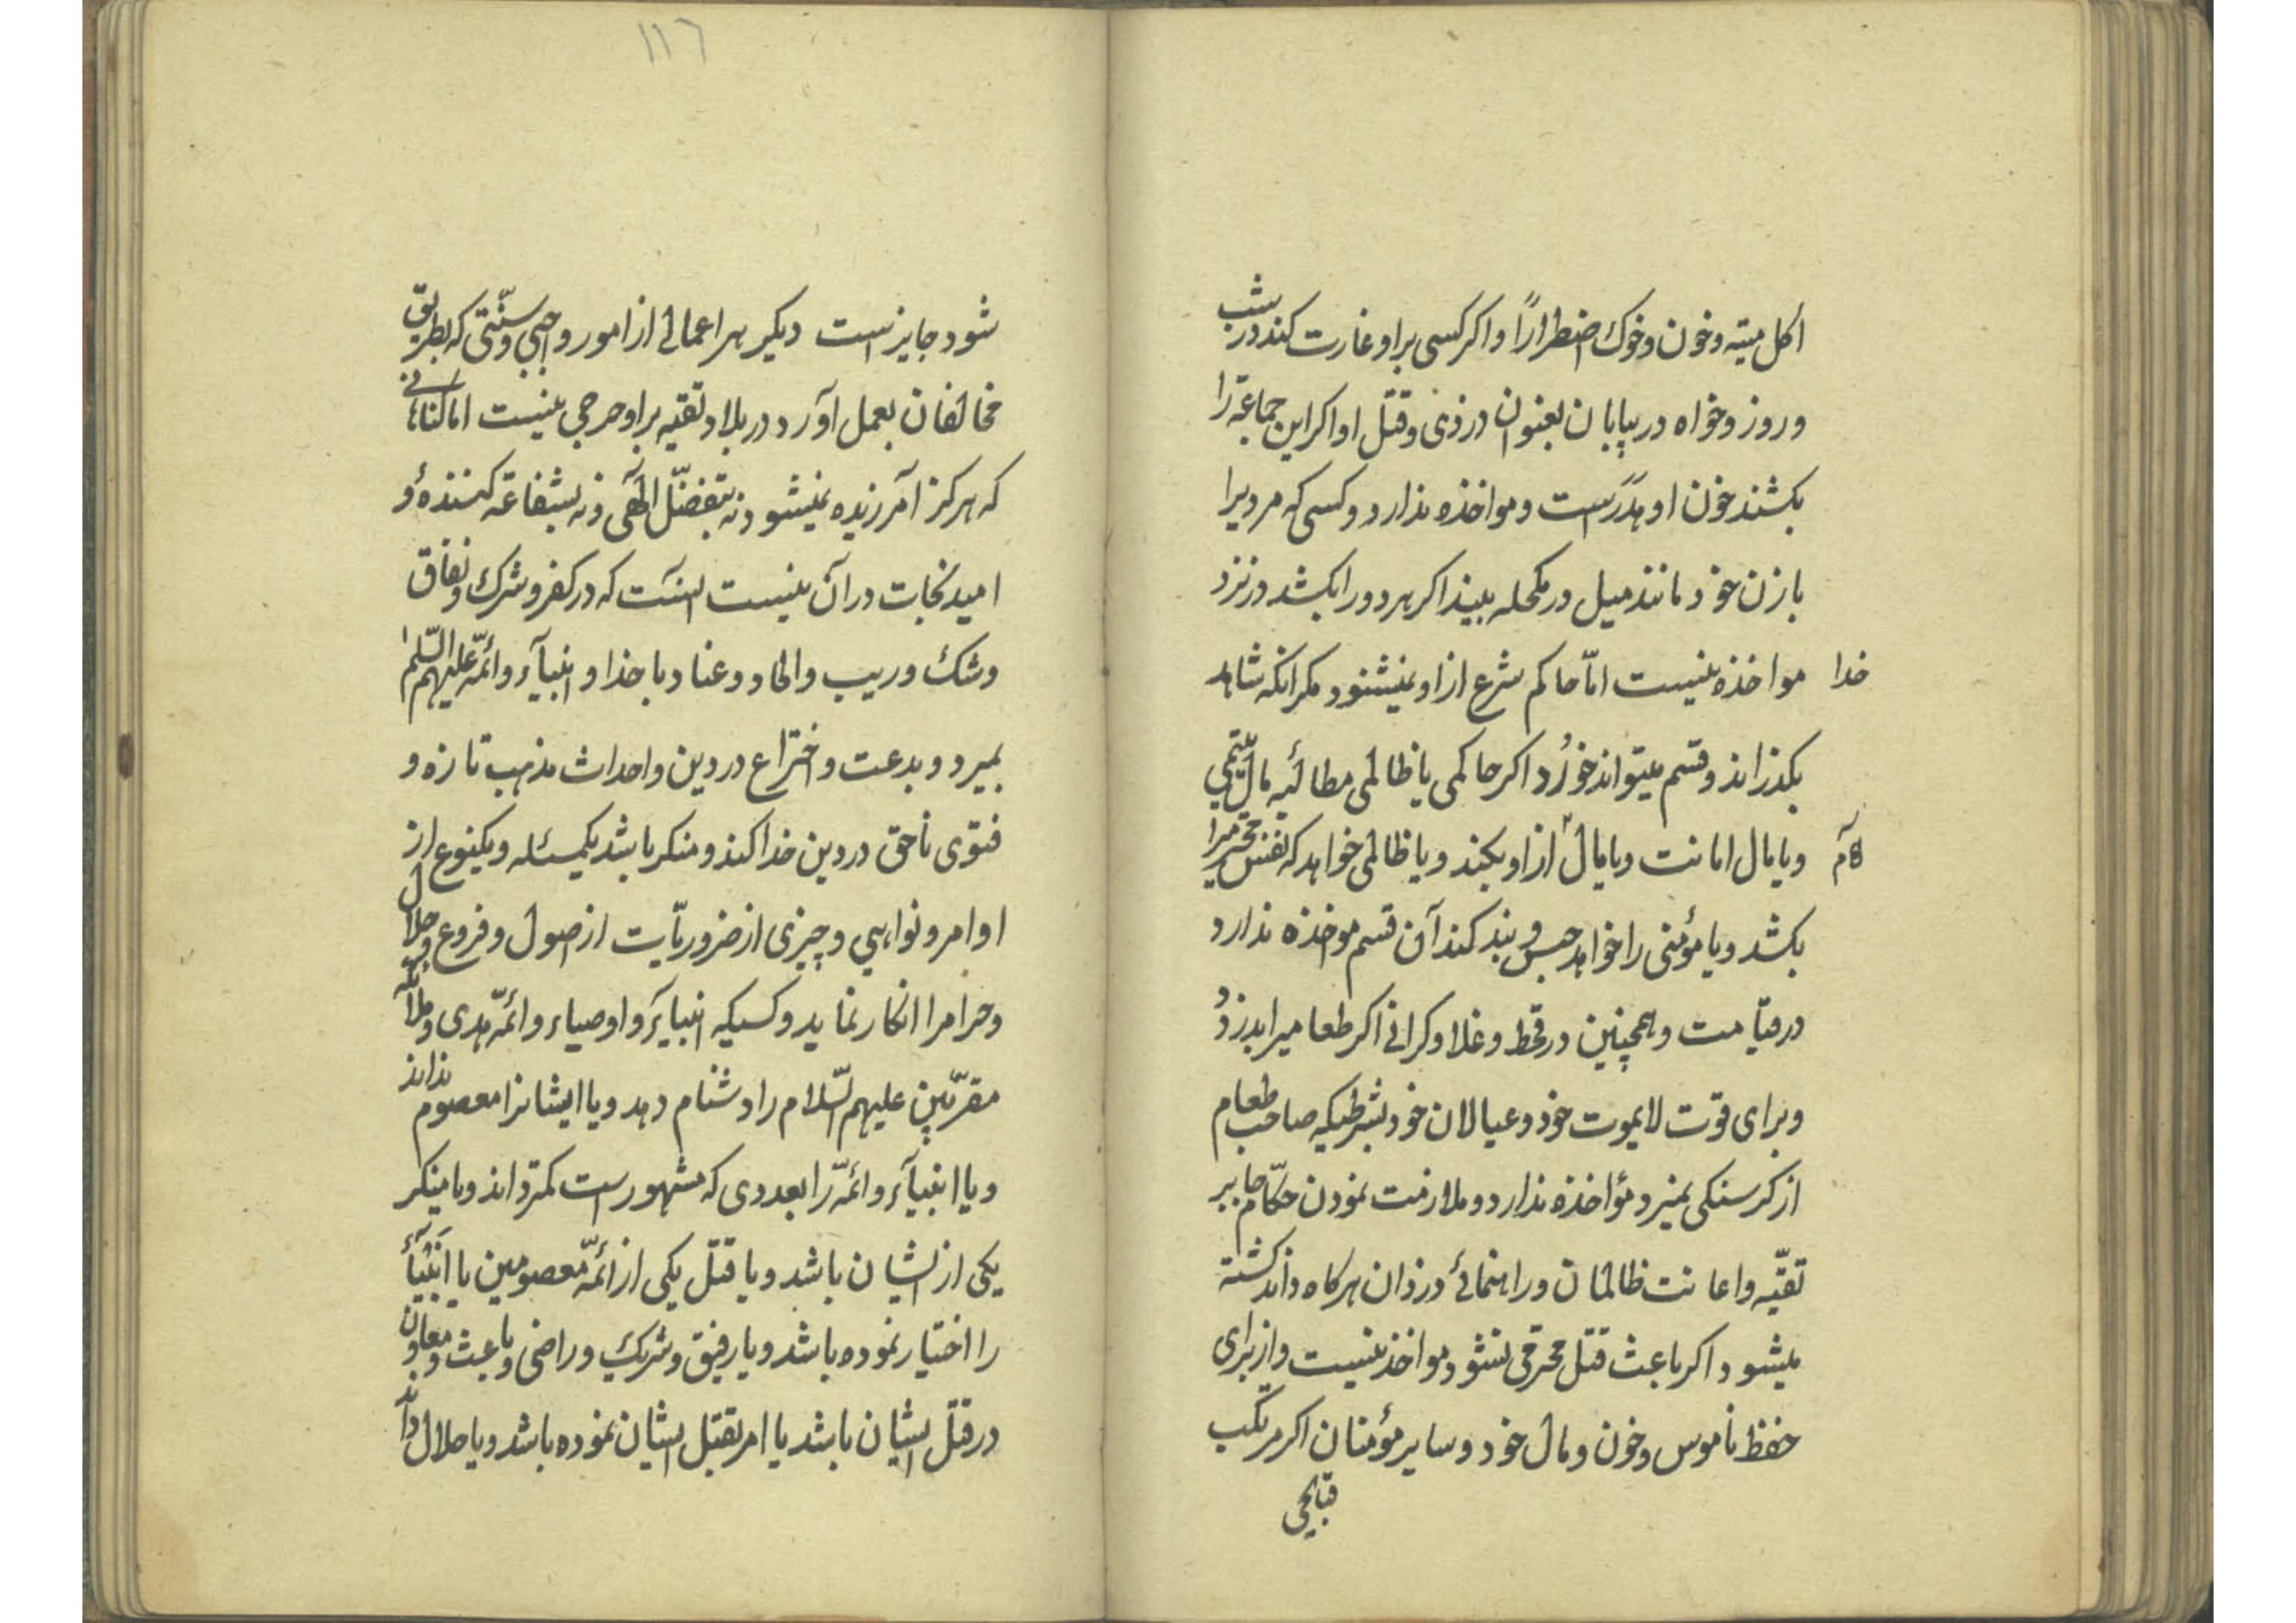 اکل میته و خون و خوک اضطرارًا و اکر کسی بر او غارت کند در شب
و روز و خواه در بیابان بعنوان دزدی و قتل او اکر این جماعة را
بکشند خون او هدَرَست و مواخذه ندارد و کسی که مردیرا
با زن خود مانند میل در مکحله بیند اکر هر دو را بکشد در نزد
خدا مواخذه نیست امّا حاکم شرع از او نمیشنود مکر انکه شاهد
بکذراند و قسم میتواند خوُرد اکر حاکمی یا ظالمی مطالبه مال یتیمی
و یا مال امانت و یا مال از او بکند و یا ظالمی خواهد که نفس محترمیرا
بکشد و یا مؤمنی را خواهد حبس و بند کند آن قسم موخذه ندارد
در قیامت و همچنین در قحط و غلا و کرانی اکر طعامیرا بدزدد
و برای قوّت لایموت خود و عیالان خود بشرطیکه صاحب طعام
از کرسنکی نمیرد مؤاخذه ندارد و ملازمت نمودن حکّام جابر
تقیّه و اعانت ظالمان و راهنمائی دزدان هرکاه داند کشته
میشود اکر باعث قتل محترمی نشود مواخذه نیست و از برای
حفظ ناموس و خون و مال خود و سایر مؤمنان اکر مرتکب
قبایحی
١١٦
شود جایز است دیکر هر اعمالی از امور واجبی و سنّتی که بطریق
مخالفان بعمل آورد در بلاد تقیه بر او حرجی نیست اما کناهانی
که هرکز آمرزیده نمیشود نه بتفضّل الٓهی و نه بشفاعة کنندهٔ و
امید نجات در آن نیست اینست که در کفر و شرک و نفاق
و شک و ریب و الحاد و عناد با خدا و انبیآء و ائمّه علیهم السّلم
بمیرد و بدعت و اختراع در دین و احداث مذهب تازه و
فتوی ناحق در دین خدا کند و منکر باشد یکمسئله و یکنوع از
اوامر و نواهی و چیزی از ضروریّات از اصول و فروع و حلال
و حرامرا انکار نماید و کسیکه انبیآء و اوصیاء و ائمّه هدی و ملائکه
مقرّبین علیهم السّلام را دشنام دهد و یا ایشانرا معصوم نداند
و یا انبیآء و ائمّه را بعددی که مشهور است کمتر داند و یا منکر
یکی از ایشان باشد و یا قتل یکی از ائمّه معصومین یا انبیآء
را اختیار نموده باشد و یا رفیق و شریک و راضی و باعث و معاون
در قتل ایشان باشد یا امر بقتل ایشان نموده باشد و یا حلال داند